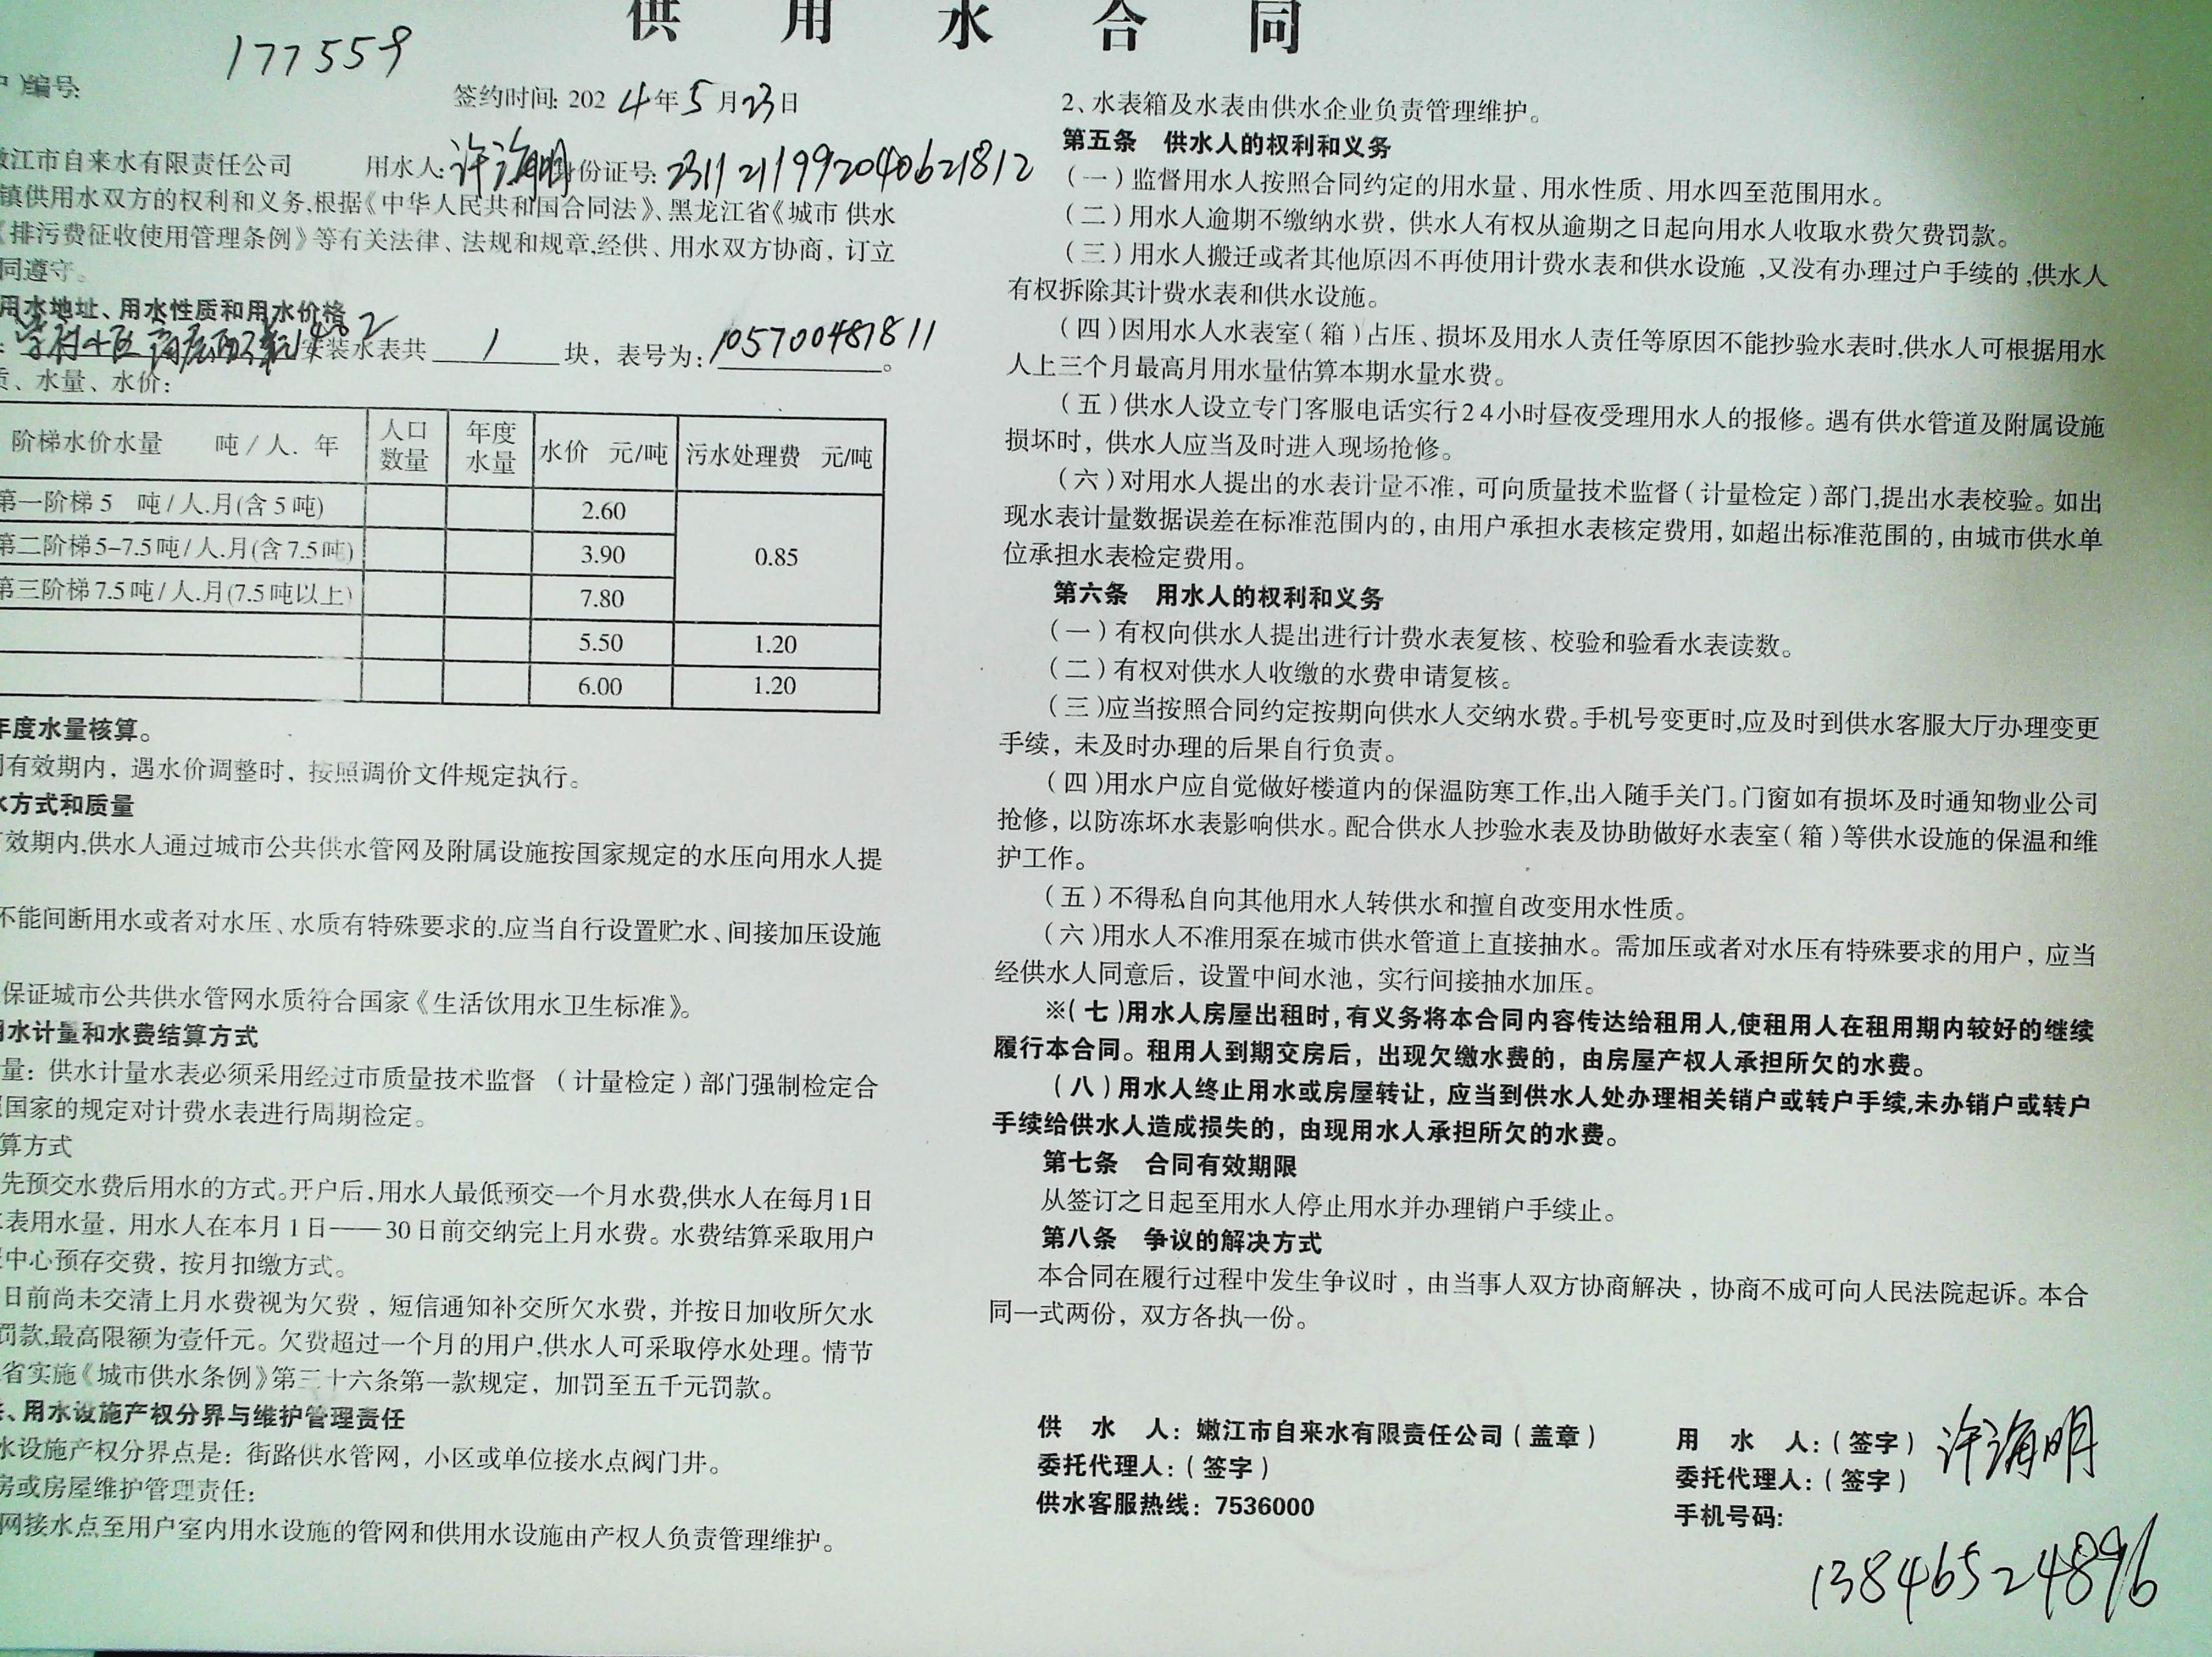 供用水合同
177559
编号:
签约时间: 2024年5月23日
嫩江市自来水有限责任公司 用水人:许海明身份证号:2311211992040621812
镇供用水双方的权利和义务,根据《中华人民共和国合同法》、黑龙江省《城市 供水
《排污费征收使用管理条例》等有关法律、法规和规章,经供、用水双方协商，订立
同遵守。
用水地址、用水性质和用水价格
1402安装水表共 1 块，表号为:105700487811。
质、水量、水价:
阶梯水价水量 吨/人.年 人口数量 年度水量 水价 元/吨 污水处理费 元/吨
第一阶梯5 吨/人.月(含5吨) 2.60
第二阶梯5-7.5吨/人.月(含7.5吨) 3.90 0.85
第三阶梯7.5吨/人.月(7.5吨以上) 7.80
5.50 1.20
6.00 1.20
年度水量核算。
同有效期内，遇水价调整时，按照调价文件规定执行。
水方式和质量
有效期内,供水人通过城市公共供水管网及附属设施按国家规定的水压向用水人提
不能间断用水或者对水压、水质有特殊要求的,应当自行设置贮水、间接加压设施
保证城市公共供水管网水质符合国家《生活饮用水卫生标准》。
用水计量和水费结算方式
量：供水计量水表必须采用经过市质量技术监督 （计量检定）部门强制检定合
国家的规定对计费水表进行周期检定。
算方式
先预交水费后用水的方式。开户后,用水人最低预交一个月水费,供水人在每月1日
表用水量，用水人在本月1日——30日前交纳完上月水费。水费结算采取用户
中心预存交费，按月扣缴方式。
日前尚未交清上月水费视为欠费，短信通知补交所欠水费，并按日加收所欠水
罚款,最高限额为壹仟元。欠费超过一个月的用户,供水人可采取停水处理。情节
省实施《城市供水条例》第三十六条第一款规定，加罚至五千元罚款。
、用水设施产权分界与维护管理责任
水设施产权分界点是：街路供水管网，小区或单位接水点阀门井。
房或房屋维护管理责任：
网接水点至用户室内用水设施的管网和供用水设施由产权人负责管理维护。
2、水表箱及水表由供水企业负责管理维护。
第五条 供水人的权利和义务
（一）监督用水人按照合同约定的用水量、用水性质、用水四至范围用水。
（二）用水人逾期不缴纳水费，供水人有权从逾期之日起向用水人收取水费欠费罚款。
（三）用水人搬迁或者其他原因不再使用计费水表和供水设施，又没有办理过户手续的,供水人
有权拆除其计费水表和供水设施。
（四）因用水人水表室（箱）占压、损坏及用水人责任等原因不能抄验水表时,供水人可根据用水
人上三个月最高月用水量估算本期水量水费。
（五）供水人设立专门客服电话实行24小时昼夜受理用水人的报修。遇有供水管道及附属设施
损坏时，供水人应当及时进入现场抢修。
（六）对用水人提出的水表计量不准，可向质量技术监督（计量检定）部门,提出水表校验。如出
现水表计量数据误差在标准范围内的，由用户承担水表核定费用，如超出标准范围的，由城市供水单
位承担水表检定费用。
第六条 用水人的权利和义务
（一）有权向供水人提出进行计费水表复核、校验和验看水表读数。
（二）有权对供水人收缴的水费申请复核。
（三）应当按照合同约定按期向供水人交纳水费。手机号变更时,应及时到供水客服大厅办理变更
手续，未及时办理的后果自行负责。
（四）用水户应自觉做好楼道内的保温防寒工作,出入随手关门。门窗如有损坏及时通知物业公司
抢修，以防冻坏水表影响供水。配合供水人抄验水表及协助做好水表室（箱）等供水设施的保温和维
护工作。
（五）不得私自向其他用水人转供水和擅自改变用水性质。
（六）用水人不准用泵在城市供水管道上直接抽水。需加压或者对水压有特殊要求的用户，应当
经供水人同意后，设置中间水池，实行间接抽水加压。
※（七）用水人房屋出租时，有义务将本合同内容传达给租用人,使租用人在租用期内较好的继续
履行本合同。租用人到期交房后，出现欠缴水费的，由房屋产权人承担所欠的水费。
（八）用水人终止用水或房屋转让，应当到供水人处办理相关销户或转户手续,未办销户或转户
手续给供水人造成损失的，由现用水人承担所欠的水费。
第七条 合同有效期限
从签订之日起至用水人停止用水并办理销户手续止。
第八条 争议的解决方式
本合同在履行过程中发生争议时，由当事人双方协商解决，协商不成可向人民法院起诉。本合
同一式两份，双方各执一份。
供 水 人：嫩江市自来水有限责任公司（盖章）
委托代理人：（签字）
供水客服热线：7536000
用 水 人：（签字）许海明
委托代理人：（签字）
手机号码：
13846524896